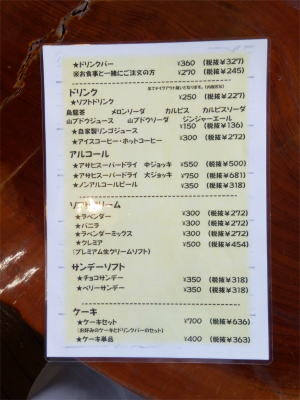 ★ドリンクバー ¥360 (税抜¥327)
※お食事と一緒にご注文の方 ¥270 (税抜¥245)
ドリンク
★ソフトドリンク ¥250 (税抜¥227)
烏龍茶 メロンソーダ カルピス カルピスソーダ
山ブドウジュース 山ブドウソーダ ジンジャーエール
★自家製リンゴジュース ¥150 (税抜¥136)
★アイスコーヒー・ホットコーヒー ¥300 (税抜¥272)
アルコール
★アサヒスーパードライ 中ジョッキ ¥550 (税抜¥500)
★アサヒスーパードライ 大ジョッキ ¥750 (税抜¥681)
★ノンアルコールビール ¥350 (税抜¥318)
ソフトクリーム
★ラベンダー ¥300 (税抜¥272)
★バニラ ¥300 (税抜¥272)
★ラベンダーミックス ¥300 (税抜¥272)
★クレミア ¥500 (税抜¥454)
(プレミアム生クリームソフト)
サンデーソフト
★チョコサンデー ¥350 (税抜¥318)
★ベリーサンデー ¥350 (税抜¥318)
ケーキ
★ケーキセット ¥700 (税抜¥636)
(お好みのケーキとドリンクバーのセット)
★ケーキ単品 ¥400 (税抜¥363)